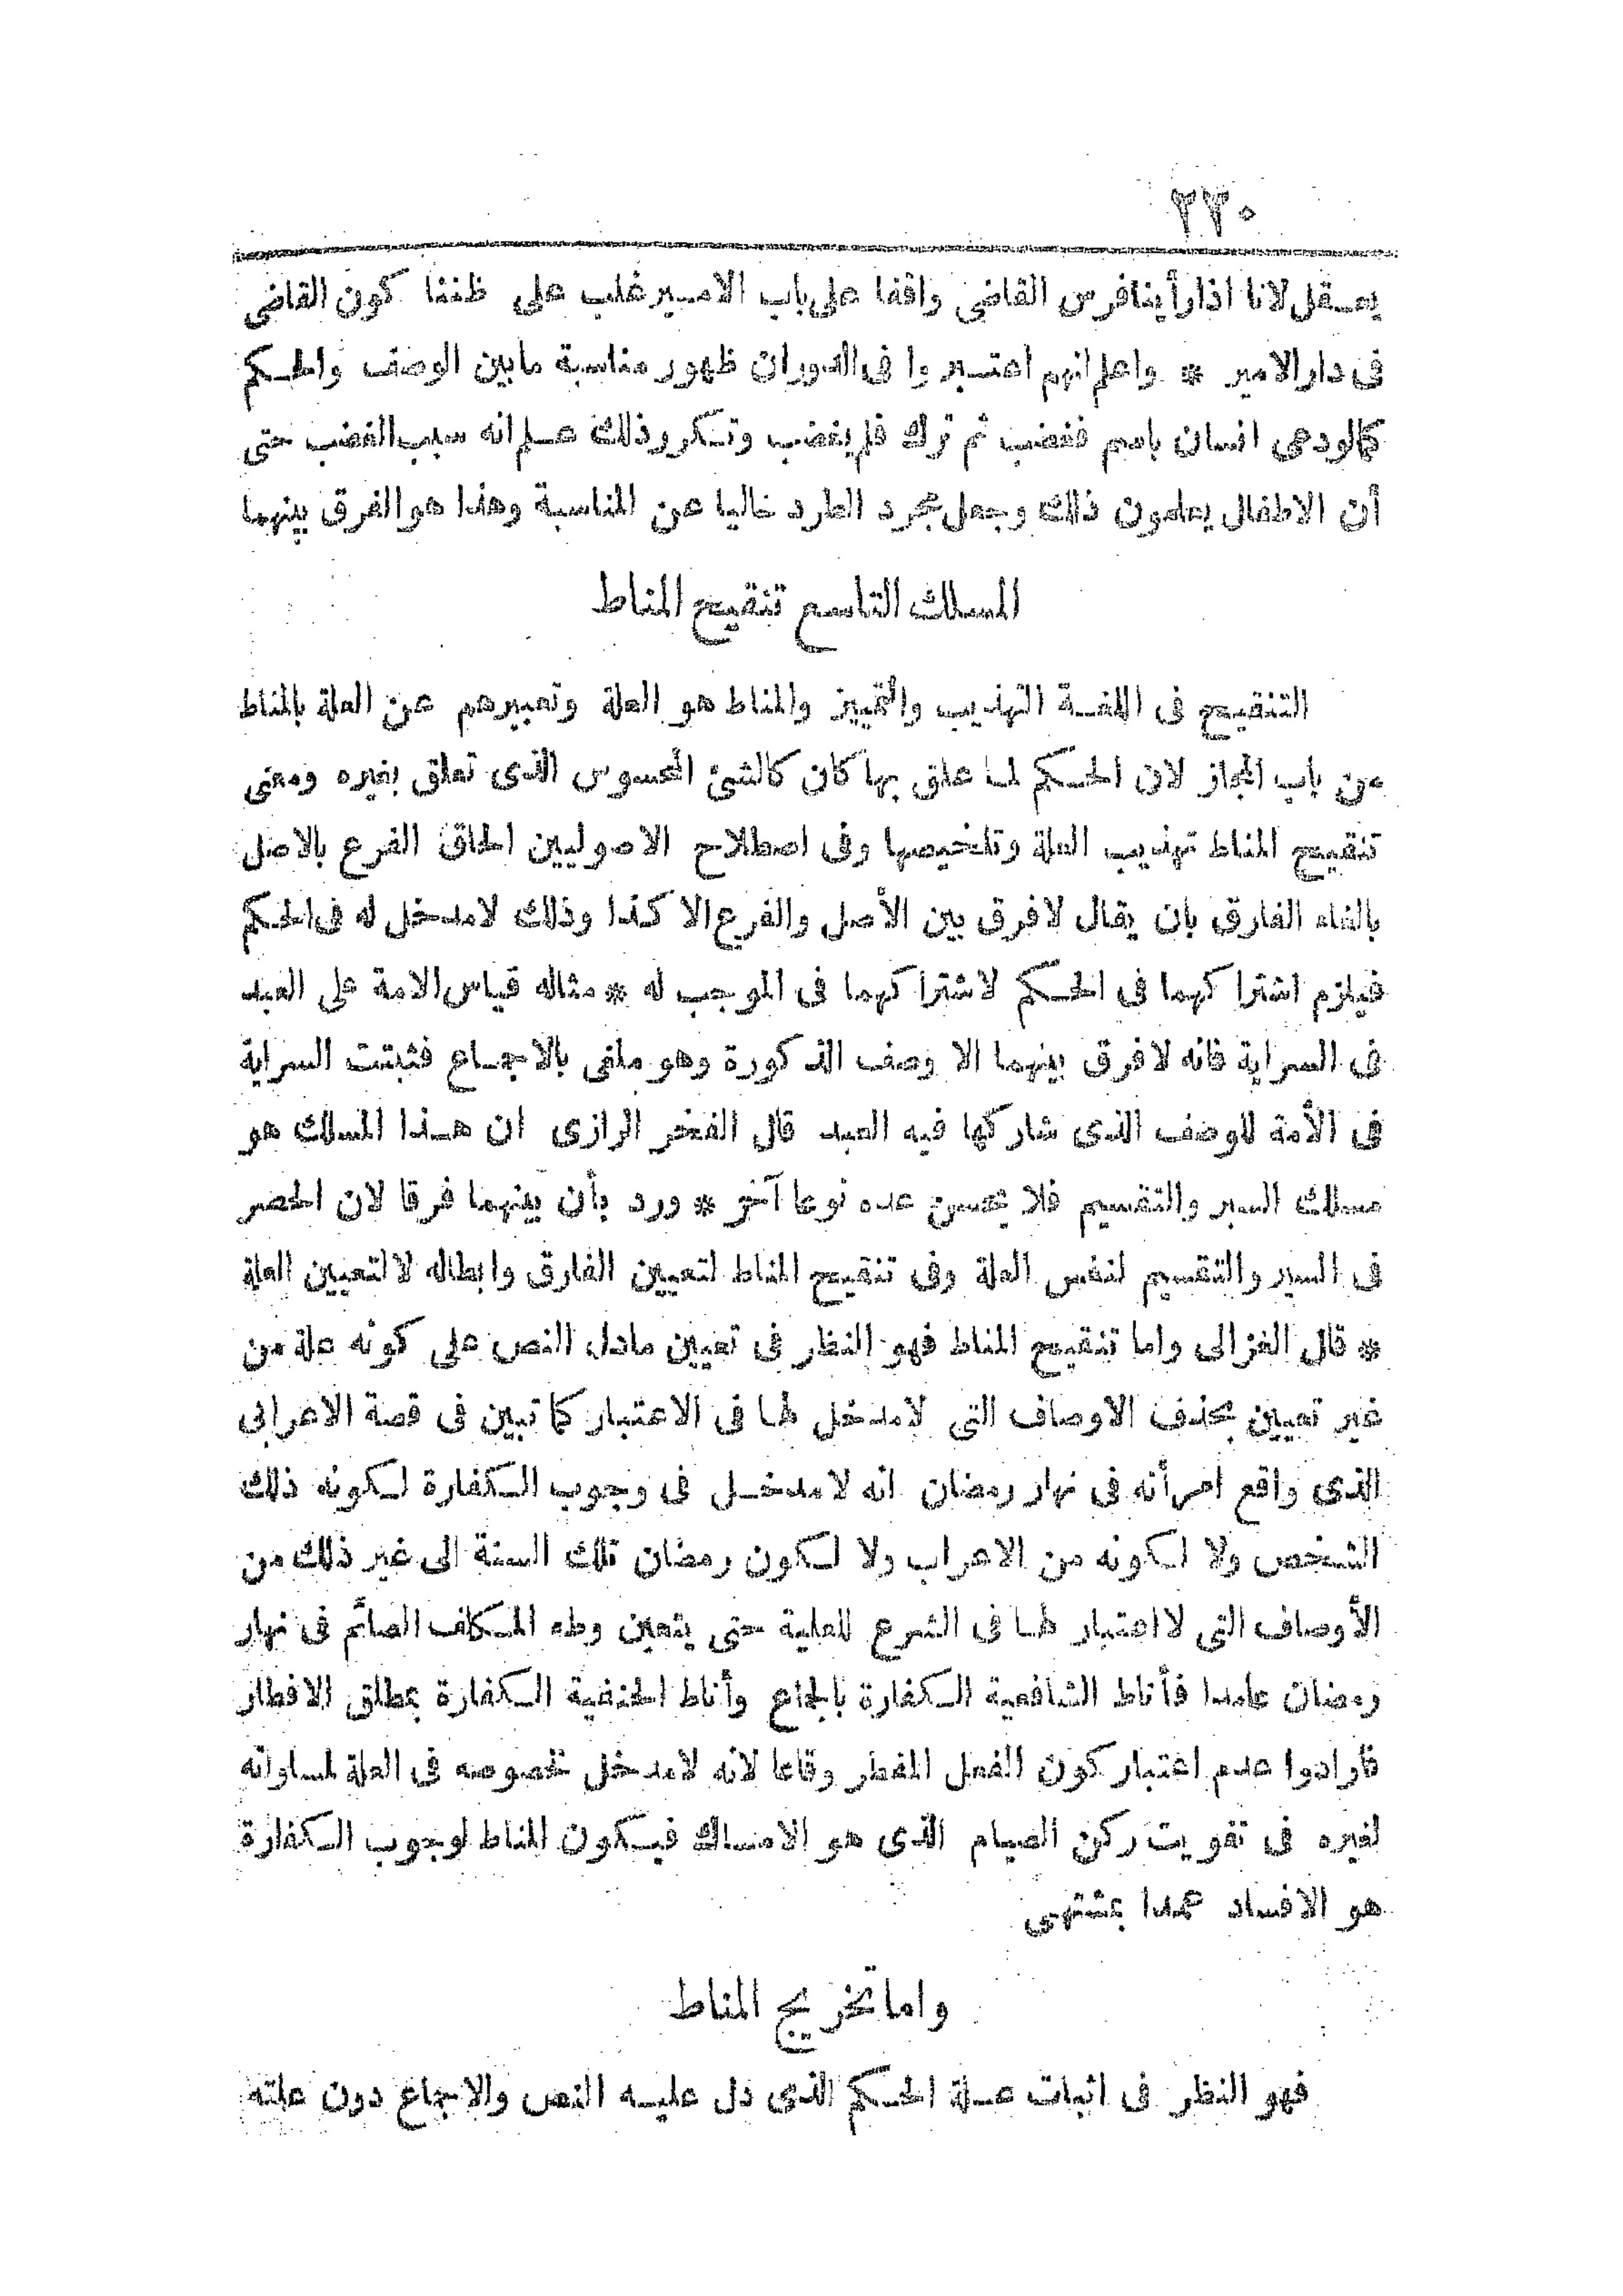 ٢٢٠
يعقل لانا اذا رأينا فرس القاضى واقفا على باب الامير غلب على ظننا كون القاضى
فى دار الامير * واعلم انهم اعتبروا فى الدوران ظهور مناسبة ما بين الوصف والحكم
كما لو دعى انسان باسم فغضب ثم ترك فلم يغضب وتكرر ذلك علم انه سبب الغضب حتى
أن الاطفال يعلمون ذلك وجعل مجرد الطرد خاليا عن المناسبة وهذا هو الفرق بينهما
المسلك التاسع تنقيح المناط
التنقيح فى اللغة التهذيب والتمييز والمناط هو العلة وتعبيرهم عن العلة بالمناط
من باب المجاز لان الحكم لما علق بها كان كالشئ المحسوس الذى تعلق بغيره ومعنى
تنقيح المناط تهذيب العلة وتلخيصها وفى اصطلاح الاصوليين الحاق الفرع بالاصل
بالغاء الفارق بان يقال لا فرق بين الأصل والفرع الا كذا وذلك لا مدخل له فى الحكم
فيلزم اشتراكهما فى الحكم لاشتراكهما فى الموجب له * مثاله قياس الامة على العبد
فى السراية فانه لا فرق بينهما الا وصف الذكورة وهو ملغى بالاجماع فثبتت السراية
فى الأمة للوصف الذى شاركها فيه العبد قال الفخر الرازى ان هذا المسلك هو
مسلك السبر والتقسيم فلا يحسن عده نوعا آخر * ورد بأن بينهما فرقا لان الحصر
فى السبر والتقسيم لنفس العلة وفى تنقيح المناط لتعيين الفارق وابطاله لا لتعيين العلة
* قال الغزالى واما تنقيح المناط فهو النظر فى تعيين مادل النص على كونه علة من
غير تعيين بحذف الاوصاف التى لا مدخل لها فى الاعتبار كما تبين فى قصة الاعرابى
الذى واقع امرأته فى نهار رمضان انه لا مدخل فى وجوب الكفارة لكونه ذلك
الشخص ولا لكونه من الاعراب ولا لكون رمضان تلك السنة الى غير ذلك من
الأوصاف التى لا اعتبار لها فى الشرع للعلية حتى يتعين وطء المكلف الصائم فى نهار
رمضان عامدا فأناط الشافعية الكفارة بالجماع وأناط الحنفية الكفارة بمطلق الافطار
فأرادوا عدم اعتبار كون الفعل المفطر وقاعا لانه لا مدخل لخصوصه فى العلة لمساواته
لغيره فى تفويت ركن الصيام الذى هو الامساك فيكون المناط لوجوب الكفارة
هو الافساد عمدا بمشتهى
واما تخريج المناط
فهو النظر فى اثبات علة الحكم الذى دل عليه النص والاجماع دون علته